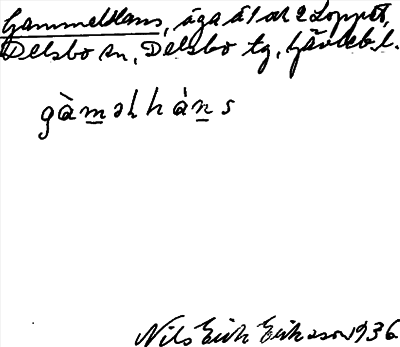 Gammelhans, äga å 1 och 2 Loppet,
Delsbo sn, Delsbo tg, Gävleb. l.
gàməlhàns
Nils Erik Eriksson 1936